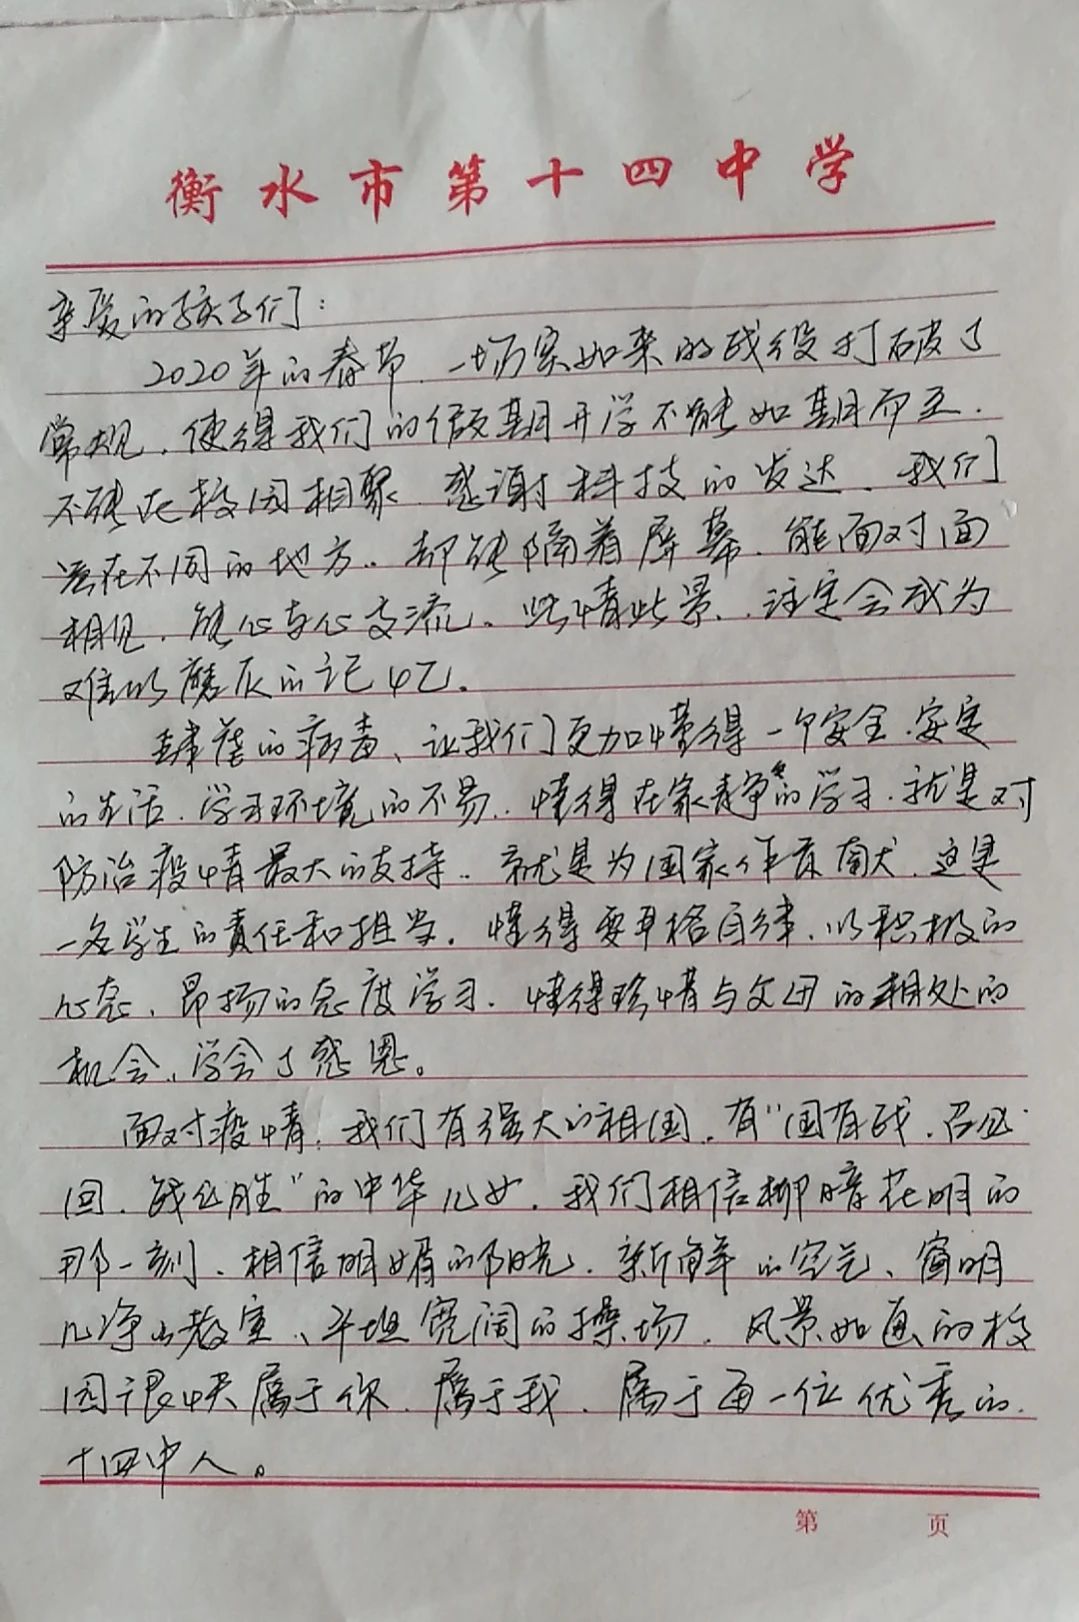 衡水市第十四中学
亲爱的孩子们：
2020年的春节，一场突如来的战役打破了
常规，使得我们的假期开学不能如期而至，
不能在校园相聚，感谢科技的发达，我们
虽在不同的地方，却能隔着屏幕，能面对面
相见，能心与心交流。此情此景，注定会成为
难以磨灭的记忆。
肆虐的病毒，让我们更加懂得一个安全、安定
的生活、学习环境的不易，懂得在家静心的学习，就是对
防治疫情最大的支持，就是为国家作贡献，这是
一名学生的责任和担当。懂得要严格自律，以积极的
心态、昂扬的态度学习，懂得珍惜与父母的相处的
机会，学会了感恩。
面对疫情，我们有强大的祖国，有“国有战，召必
回，战必胜”的中华儿女，我们相信柳暗花明的
那一刻，相信明媚的阳光，新鲜的空气、窗明
几净的教室、平坦宽阔的操场，风景如画的校
园很快属于你，属于我，属于每一位优秀的
十四中人。
第 页